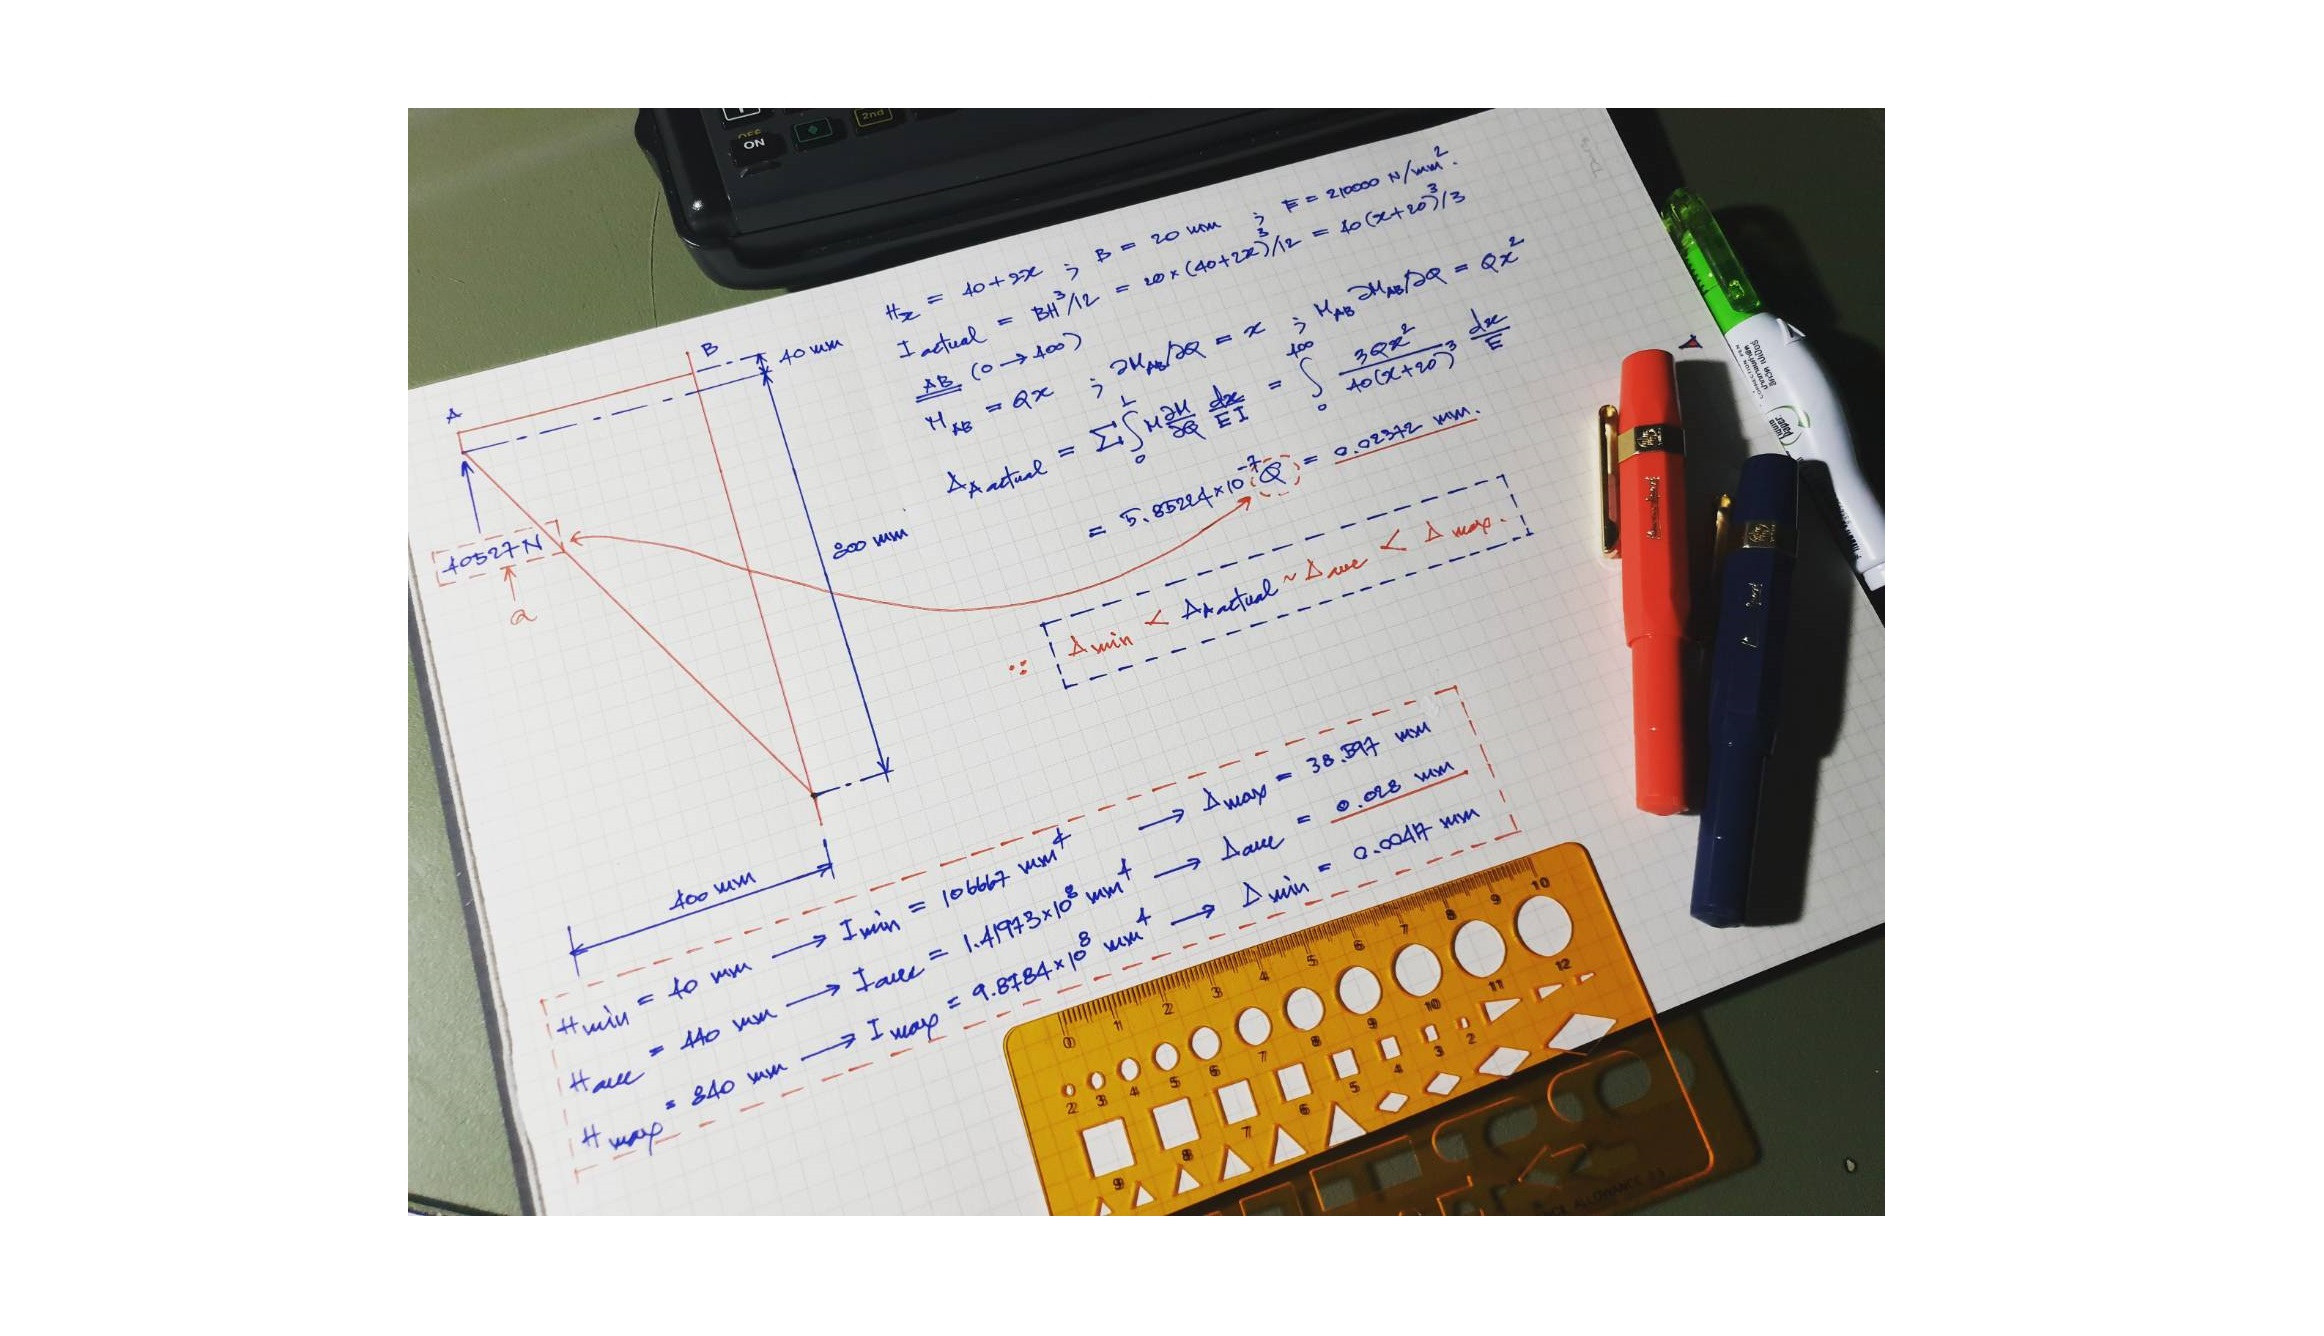 OFF
ON
2nd
H_x = 40+2x ; B = 20 mm ; E = 210000 N/mm².
I actual = BH³/12 = 20×(40+2x)³/12 = 40(x+20)³/3
AB (0→400)
M_AB = Qx ; ∂M_AB/∂Q = x ; M_AB ∂M_AB/∂Q = Qx²
Δ_A actual = Σ∫₀ᴸ M ∂M/∂Q dx/EI = ∫₀⁴⁰⁰ 3Qx²/40(x+20)³ dx/E
= 5.85224×10⁻⁷ Q = 0.02372 mm.
∵ Δmin < Δ_A actual ~ Δave < Δmax.
A
B
40 mm
800 mm
40527 N
Q
400 mm
Hmin = 40 mm → Imin = 106667 mm⁴ → Δmax = 38.597 mm
Have = 440 mm → Iave = 1.41973×10⁸ mm⁴ → Δave = 0.028 mm
Hmax = 840 mm → Imax = 9.8784×10⁸ mm⁴ → Δmin = 0.00417 mm
0 1 2 3 4 5 6 7 8 9 10
2 3 4 5 6 7 8 9 10 11 12
9 8 7 6 5 4 3 2